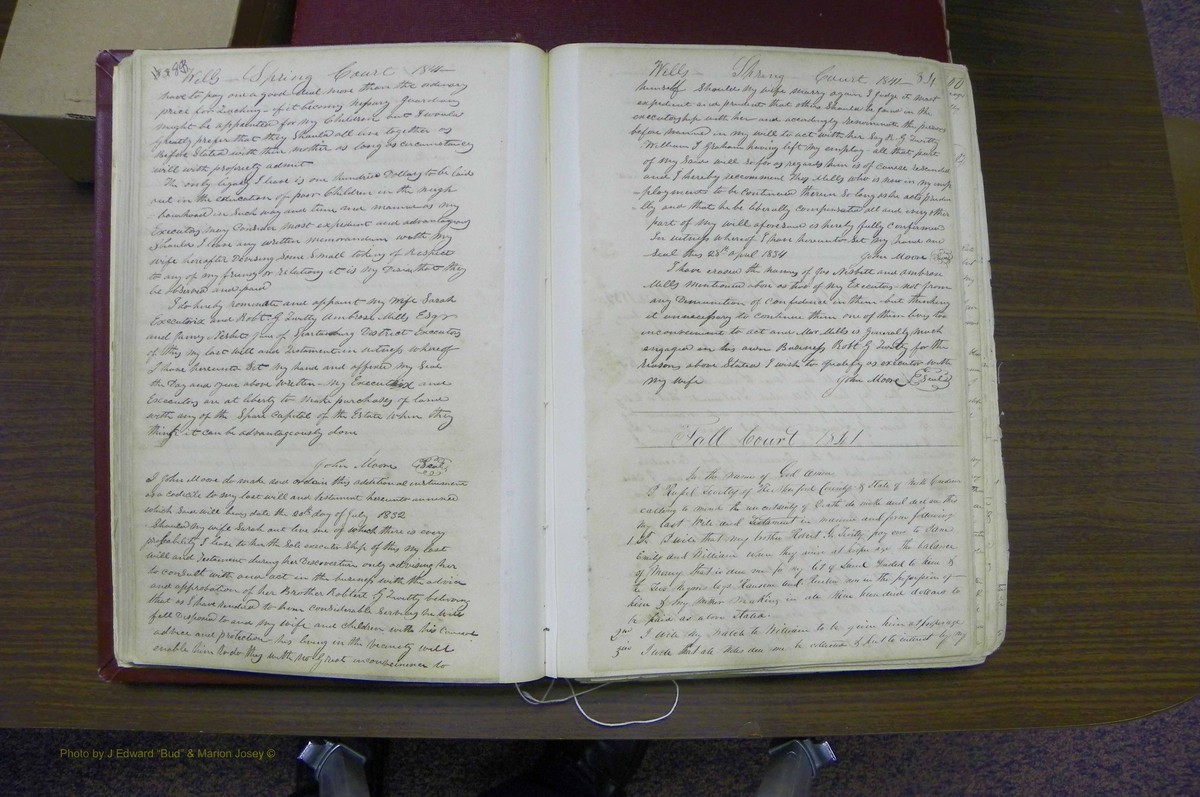 Wills - Spring Court 1841
have to pay one a good deal more than the ordinary
price for Teaching - if it becoming necessary Guardians
might be appointed for my Children but I would
greatly prefer that they Should all live together as
before Stated with their mother as long as circumstances
will with propriety admit
The only legacy I leave is one hundred Dollars to be laid
out in the education of poor Children in the neigh
-bourhood in Such way and time and manner as my
Executors may Consider most expedient and advantageous
Should I leave any written memorandum with my
wife hereafter Devising Some Small token of Respect
to any of my friends or Relations it is my Desire that they
be observed and paid
I do hereby nominate and appoint my Wife Sarah
Executrix and Robt. G Twitty Ambrose Mills Esqr
and James Nesbit Jun of Spartanburg District Executors
of this my last Will and Testament in witness whereof
I have hereunto Set my hand and affixed my Seal
the Day and year above Written - My Executrix and
Executors are at liberty to make purchases of land
with any of the Spare Capital of the Estate when they
think it can be advantageously done
John Moore Seal
I John Moore do make and ordain this additional instrument
as a codicil to my last will and testament hereunto annexed
which Said will bears date the 20th day of July 1832
Should my wife Sarah out live me of which there is every
probability I leave to her the Sole executor Ship of this my last
will and Testament during her Discovertion only advising her
to consult with and act in the business with the advice
and approbation of her Brother Robbert G Twitty believing
that as I have rendered to him considerable Service he will
fell disposed to aid my wife and children with his Council
advice and protection his living in the vicinety will
enable him to do they with no Great inconvenience to
Wills - Spring Court 1841 - 331
himself Should my wife marry again I judge it most
expedient and prudent that others Should be joined in the
executorship with her and accordingly renominate the persons
before named in my will to act with her Say R G Twitty
William T Graham having left my employ all that part
of my Said will So far as regards him is of course rescinded
and I hereby recommend Mills who is now in my emp
-ployment to be continued therein So long as he acts prudent
-lly and that he be liberally compensated all and every other
part of my will aforesaid is hereby fully confirmed
In witness whereof I have hereunto Set my hand and
Seal this 28th april 1834 John Moore Seal
I have erased the names of Jas Nesbitt and ambrose
Mills mentioned above as two of my Executors not from
any Diminution of confidence in them but thinking
it unnecessary to continue them one of them lives too
inconvenient to act and Mr Mills is Generally much
engaged in his own Business Robt G Twitty for the
Reasons above Stated I wish to qualify as executor with
my wife John Moore Seal
Fall Court 1841
In the name of God Amen
I Twitty of Rutherford County & State of North Carolina
calling to mind the uncertainty of Death do make and declare this
my last Will and Testament in manner and form following
1st I will that my brother Robert G Twitty pay over to Jane
Emily and William when they arrive at lawfull age the balance
of Money that is due me for my lot of Land Deeded to him &
the two Negroes boys now in the possession of
him & my Mother Making in all Nine hundred dollars to
be paid as above Stated.
2nd I will my Watch to William to be given him at
3rd I will that all notes due me be collected & put to interest by my